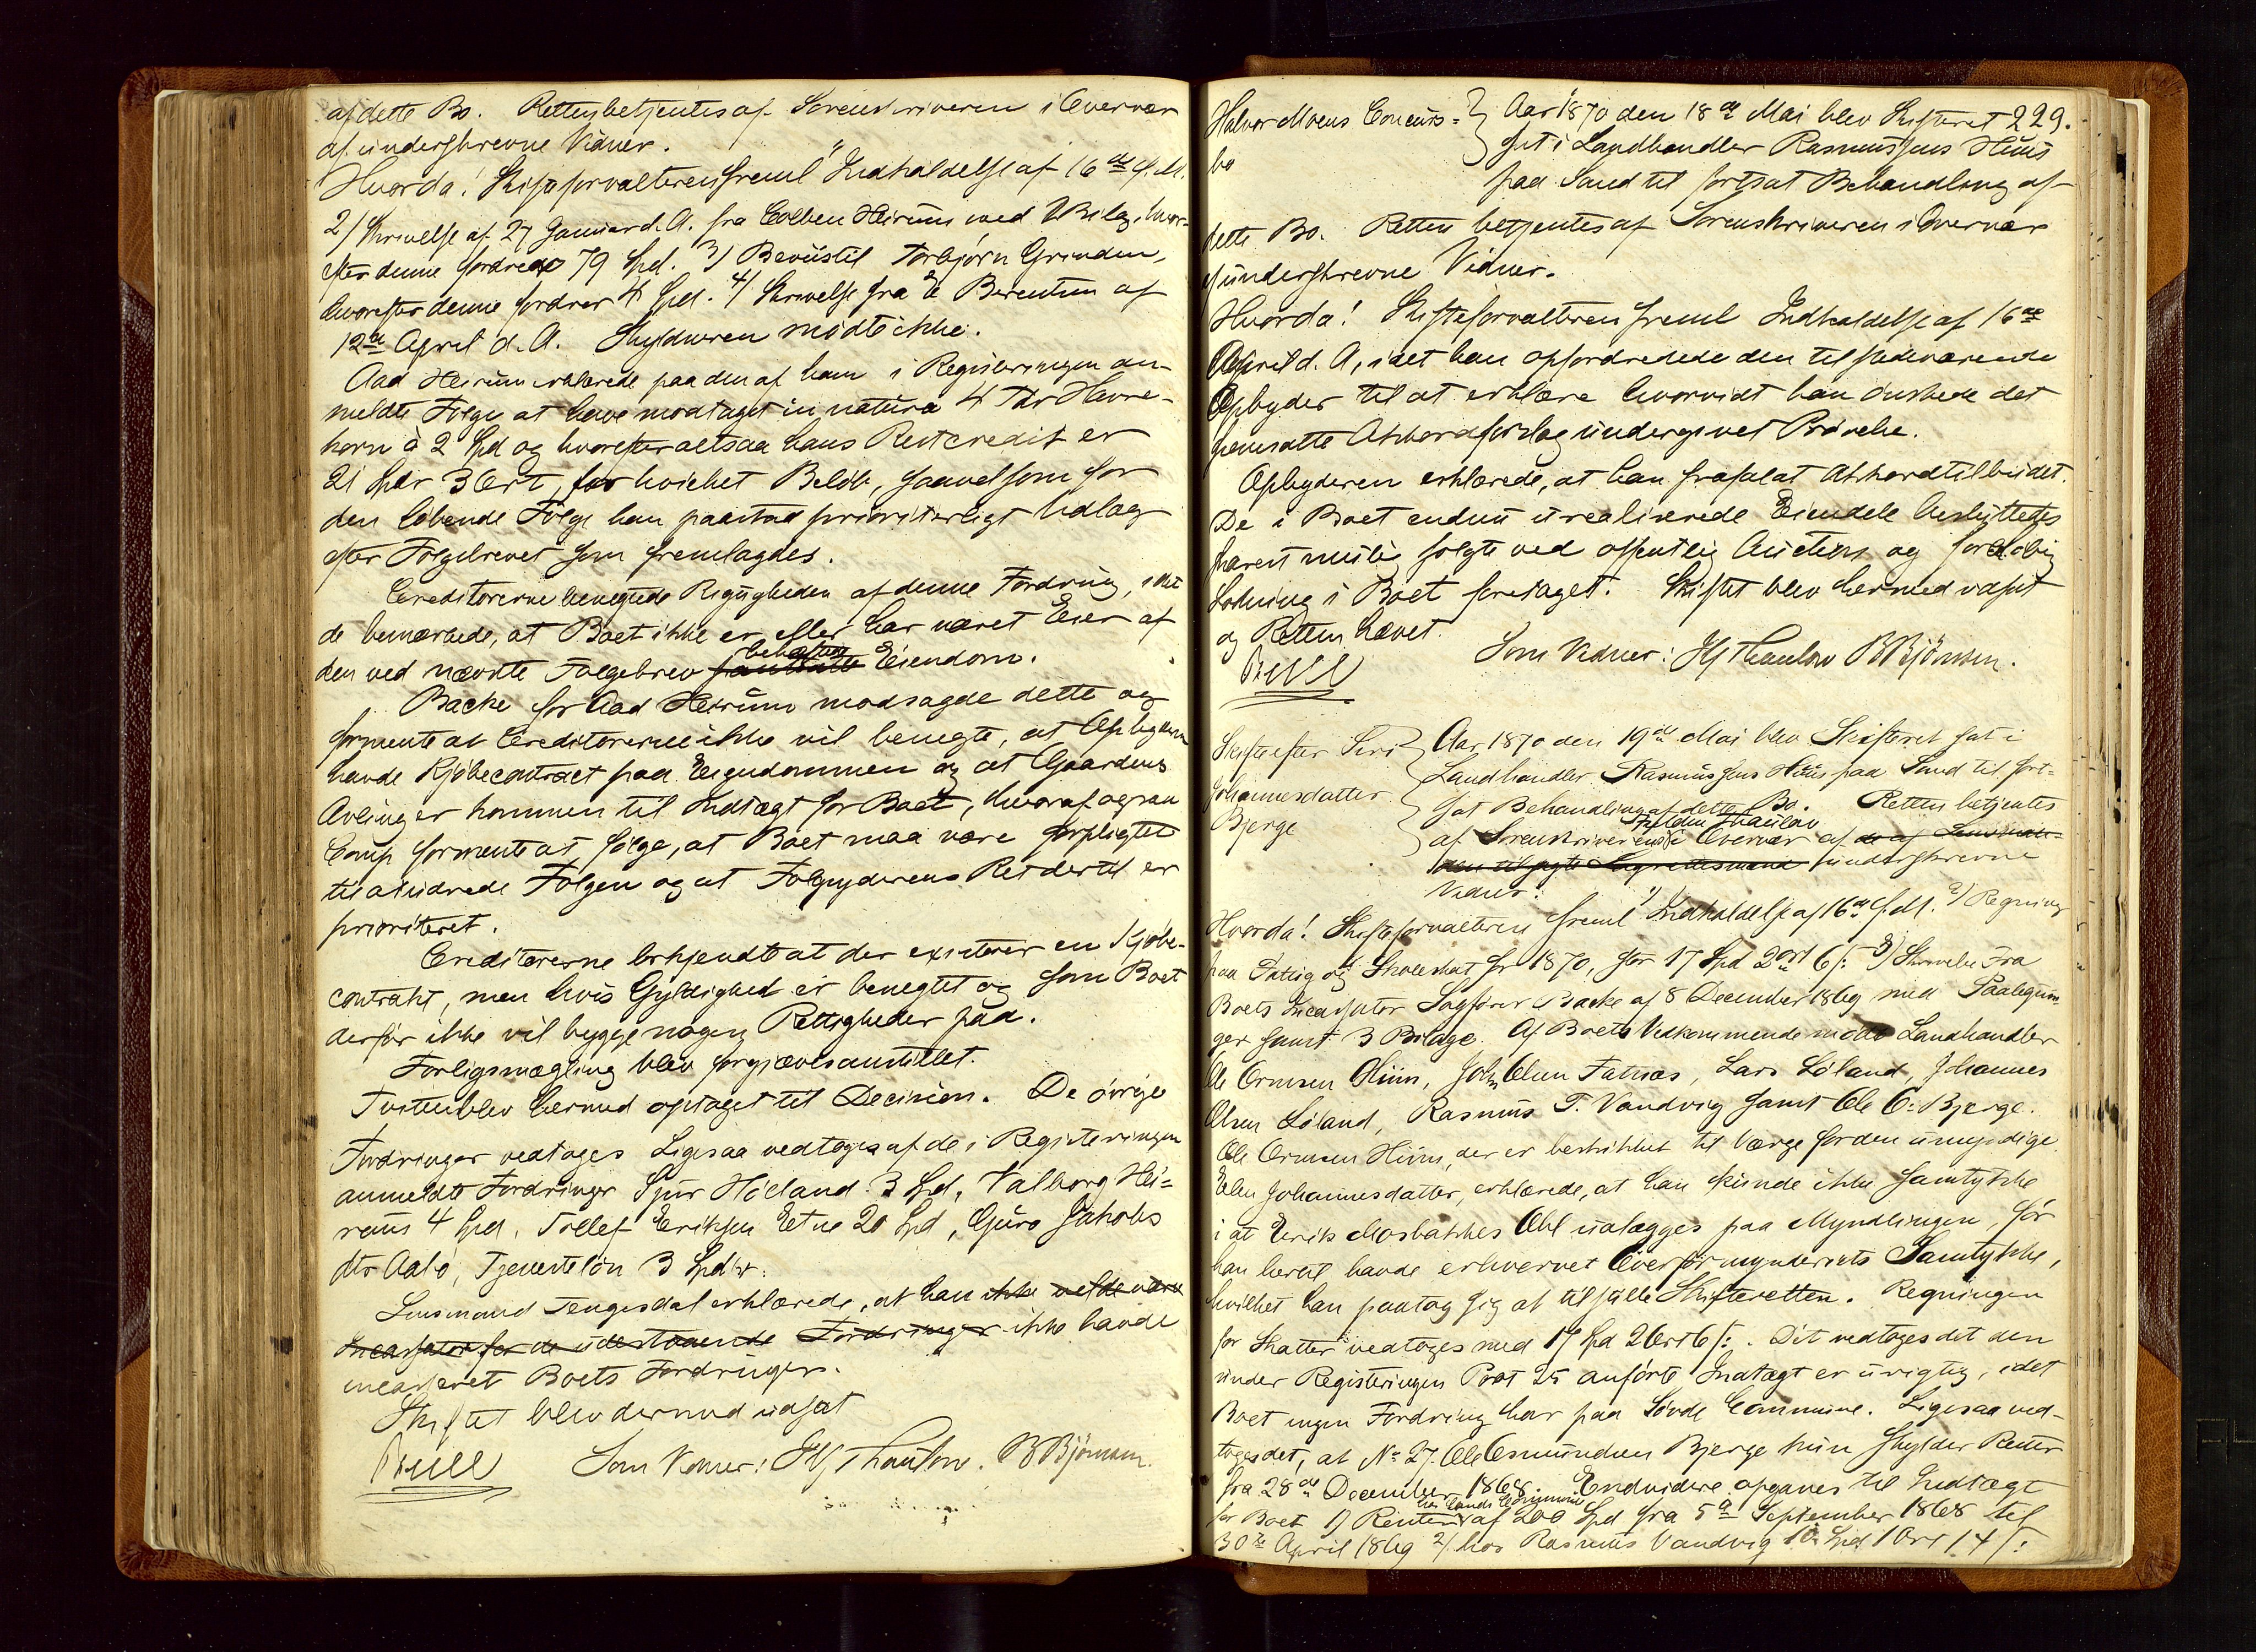 af dette Bo. Retten betjentes af Sorenskriveren i Overvær
af underskrevne Vidner.
Hvorda! Skifteforvalteren freml 1) Indkaldelse af 16de f. M.
2) Skrivelse af 27 Januar d. A. fra Colben Heirum med 1 Bilag, hvor-
efter denne fordrer 79 Spd. 3) Beviis til Torbjørn Grinden,
hvorefter denne fordrer 4 Spd. 4) Skrivelse fra Berentsen af
12te April d. A. Skyldneren mødte ikke.
Aad Heirum erklærede paa den af ham i Registeringen an-
meldte Følge at have modtaget in natura 4 Tdr Havre-
korn à 2 Spd og hvorefter altsaa hans Restcredit er
21 Spdr 3 Ort, for hvilket Beløb, saavelsom for
den løbende Følge han paastod prioriterligt Udlæg
efter Følgebrevet som fremlagdes.
Creditorerne benegtede Rigtigheden af denne Fordring, idet
de bemærkede, at Boet ikke er eller har været Eier af
den ved nævnte Følgebrev behæftede Eiendom.
Backe for Aad Heirum modsagde dette og
formente at Creditorerne ikke vil benegte, at Opbyderen
havde Kjøbecontract paa Eiendommen og at Gaardens
Avling er kommen til Indtægt for Boet, hvoraf ogsaa
Comp formente at følge, at Boet maa være forpligtet
til at udrede Følgen og at Følgnyderens Ret dertil er
prioriteret.
Creditorerne erkjendte at der existerer en Kjøbe-
contrakt, men hvis Gyldighed er benegtet og som Boet
derfor ikke vil bygge nogen Rettigheder paa.
Forligsmægling blev forgjæves anstillet.
Tvisten blev hermed optaget til Decision. De øvrige
Fordringer vedtages. Ligesaa vedtages af de i Registeringen
anmeldte Fordringer Sjur Høiland 3 Spd, Valborg Hei-
rum 4 Spd, Tollef Eriksen Etne 20 Spd, Guro Jakobs
dtr Aabø, Tjenesteløn 3 Spdlr.
Lensmand Tengesdal erklærede, at han ikke vilde være
Incassator for de udestaaende Fordringer ikke havde
incasseret Boets Fordringer.
Skiftet blev dermed udsat
Som Vidner: Hj Thaulow. B Bjørnsen.
229.
Halvor Moens Concurs-
bo
Aar 1870 den 18de Mai blev Skifteret
sat i Landhandler Rasmussens Huus
paa Sand til fortsat Behandling af
dette Bo. Retten betjentes af Sorenskriveren i Overvær
af underskrevne Vidner.
Hvorda! Skifteforvalteren freml Indkaldelse af 16de
April d. A, idet han opfordrede den tilstedeværende
Opbyder til at erklære hvorvidt han ønskede det
fremsatte Akkordforslag undergivet Prøvelse.
Opbyderen erklærede, at han frafalat Akkordtilbudet.
De i Boet endnu urealiserede Eiendele besluttedes
snarest mulig solgte ved offentlig Auction og foreløbig
Lodning i Boet foretaget. Skiftet blev hermed udsat
og Retten hævet.
Som Vidner: Hj Thaulow B Bjørnsen.
Skifte efter Siri
Johannesdatter
Bjerge
Aar 1870 den 19de Mai blev Skifteret sat i
Landhandler Rasmussens Huus paa Sand til fort-
sat Behandling af dette Bo. Retten betjentes
af Sorenskriverens Fuldm Thaulow i Overvær af de af Lensman-
den tilsagte Lagrettesmænd underskrevne
Vidner.
Hvorda! Skifteforvalteren freml 1) Indkaldelse af 16de f. M. 2) Regning
paa Fattig og Skoleskat for 1870, stor 17 Spd 2 ort 6 s: 3) Skrivelse fra
Boets Incassator Sagfører Backe af 8 December 1869 med Paategnin-
ger samt 3 Bilage. Af Boets Vedkommende mødte Landhandler
Ole Ormsen Hiim, Johs Olsen Fatnæs, Lars Løland, Johannes
Olsen Løland, Rasmus T. Vandvig samt Ole O: Bjerge.
Ole Ormsen Hiim, der er beskikket til Værge for den umyndige
Elen Johannesdatter, erklærede, at han kunde ikke samtykke
i at Erik Mosbakkes Obl udlægges paa Myndlingen, før
han hertil havde erhvervet Overformynderiets Samtykke,
hvilket han paatog sig at tilstille Skifteretten. Regningen
for Skatter vedtoges med 17 Spd 2 Ort 6 s: . Dit vedtoges det den
under Registeringen Post 25 anførte Indtægt er urigtig, idet
Boet ingen Fordring har paa Søvde Commune. Ligesaa ved-
toges det, at No 27. Ole Osmundsen Bjerge kun skylder Renter
fra 28de December 1868. Endvidere opgaves til Indtægt
for Boet 1) Renten hos Sands Commune af 200 Spd fra 5te September 1868 til
30te April 1869 2) hos Rasmus Vandvig 10 Spd 1 Ort 14 s: